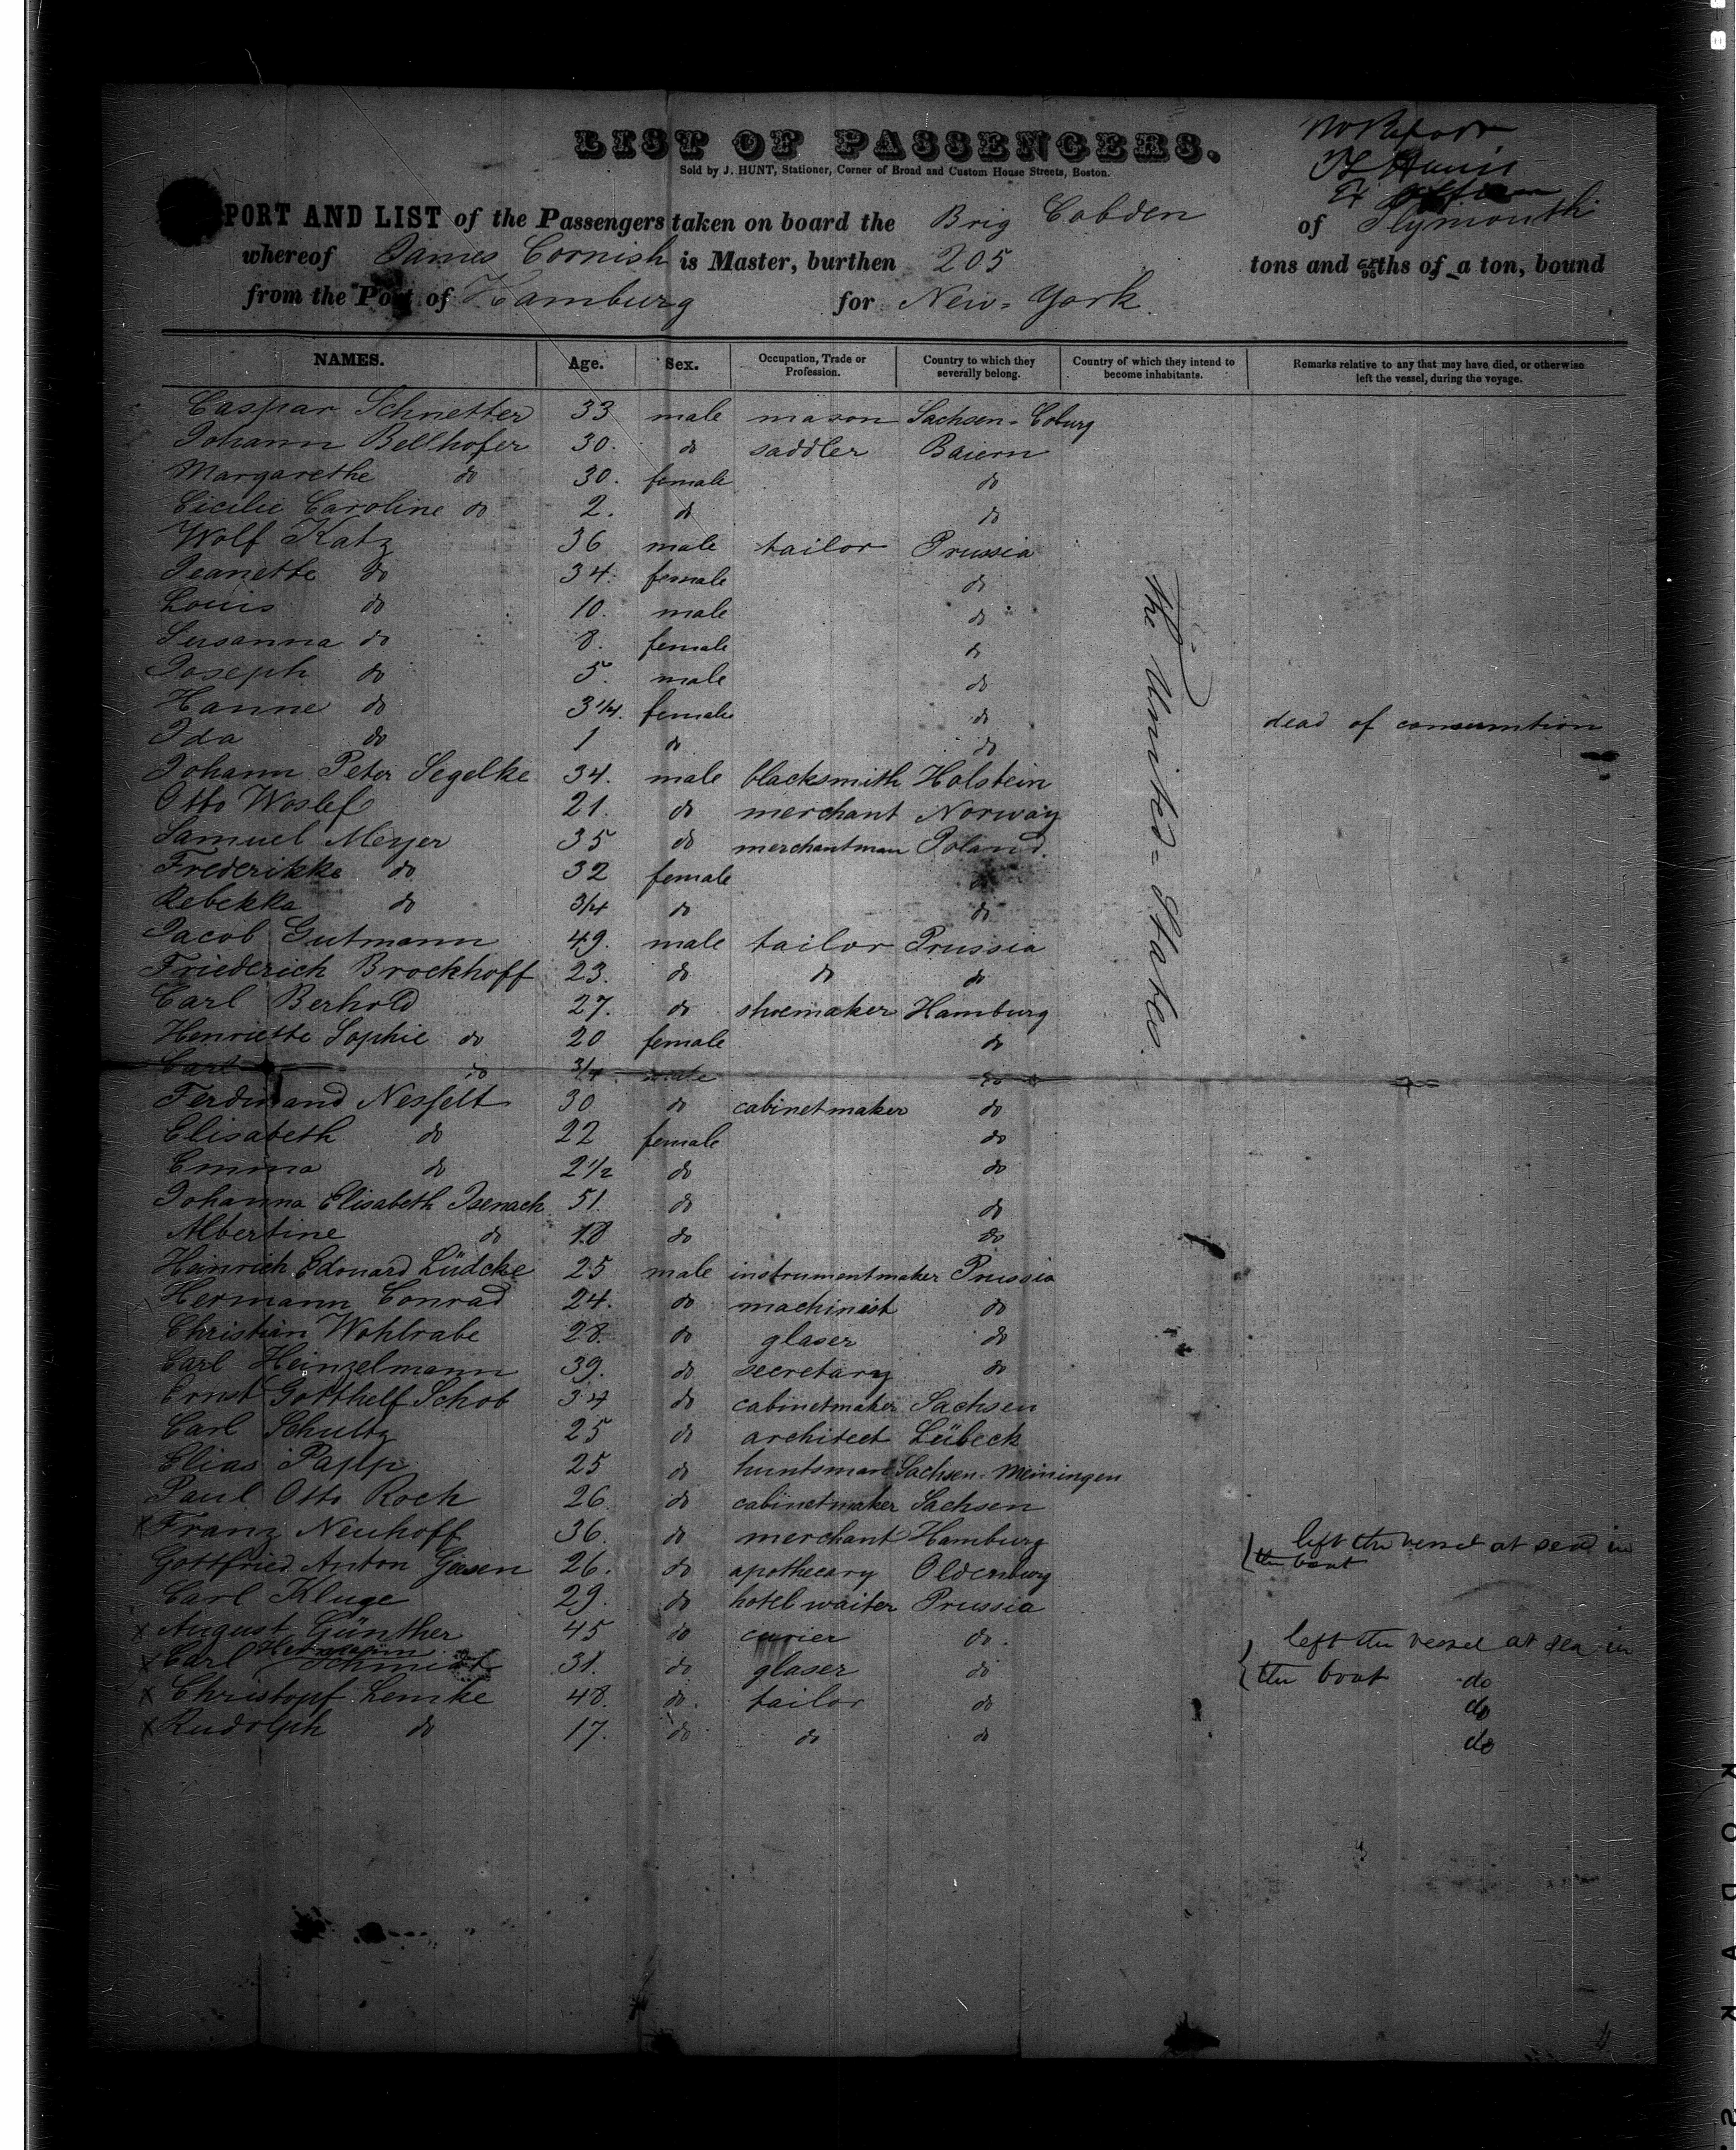 LIST OF PASSENGERS.
Sold by J. HUNT, Stationer, Corner of Broad and Custom House Streets, Boston.
PORT AND LIST of the Passengers taken on board the Brig Cobden of Plymouth
whereof James Cornish is Master, burthen 205 tons and ths of a ton, bound
from the Port of Hamburg for New-York.
NAMES. Age. Sex. Occupation, Trade or Profession. Country to which they severally belong. Country of which they intend to become inhabitants. Remarks relative to any that may have died, or otherwise left the vessel, during the voyage.
Caspar Schnetter 33 male mason Sachsen-Coburg
Johann Bellhofer 30. do saddler Baiern
Margarethe do 30. female do
Cicilie Caroline do 2. do do
Wolf Katz 36 male tailor Prussia
Jeanette do 34. female do
Louis do 10. male do
Susanna do 8. female do
Joseph do 5. male do
Hanne do 3 1/4. female do dead of consumtion
Ida do 1 do do
Johann Peter Segelke 34. male blacksmith Holstein
Otto Woslef 21. do merchant Norway
Samuel Meyer 35 do merchantman Poland.
Frederikke do 32 female do
Rebekka do 3/4 do do
Jacob Gutmann 49. male tailor Prussia
Friederich Brockhoff 23. do do do
Carl Berhold 27. do shoemaker Hamburg
Henriette Sophie do 20 female do
Carl do 3/4 male do
Ferdinand Nesfelt 30 do cabinetmaker do
Elisabeth do 22 female do
Emma do 2 1/2 do do
Johanna Elisabeth Isenach 51. do do
Albertine do 18 do do
Heinrich Edouard Lüdcke 25 male instrumentmaker Prussia
Hermann Conrad 24. do machinist do
Christian Wohlrabe 28. do glaser do
Carl Heinzelmann 39. do secretary do
Ernst Gotthelf Schob 34 do cabinetmaker Sachsen
Carl Schultz 25 do architect Lübeck
Elias Papp 25 do huntsman Sachsen-Meiningen
Paul Otto Roch 26. do cabinetmaker Sachsen
x Franz Neuhoff 36. do merchant Hamburg left the vessel at sea in
the boat
Gottfried Anton Giesen 26. do apothecary Oldenburg
Carl Kluge 29. do hotel waiter Prussia
x August Günther 45 do currier do. left the vessel at sea in
the boat do
x Carl Schmidt 31. do glaser do
x Christopf Lemke 48. do. tailor do do
x Rudolph do 17. do do do do
the United-States.